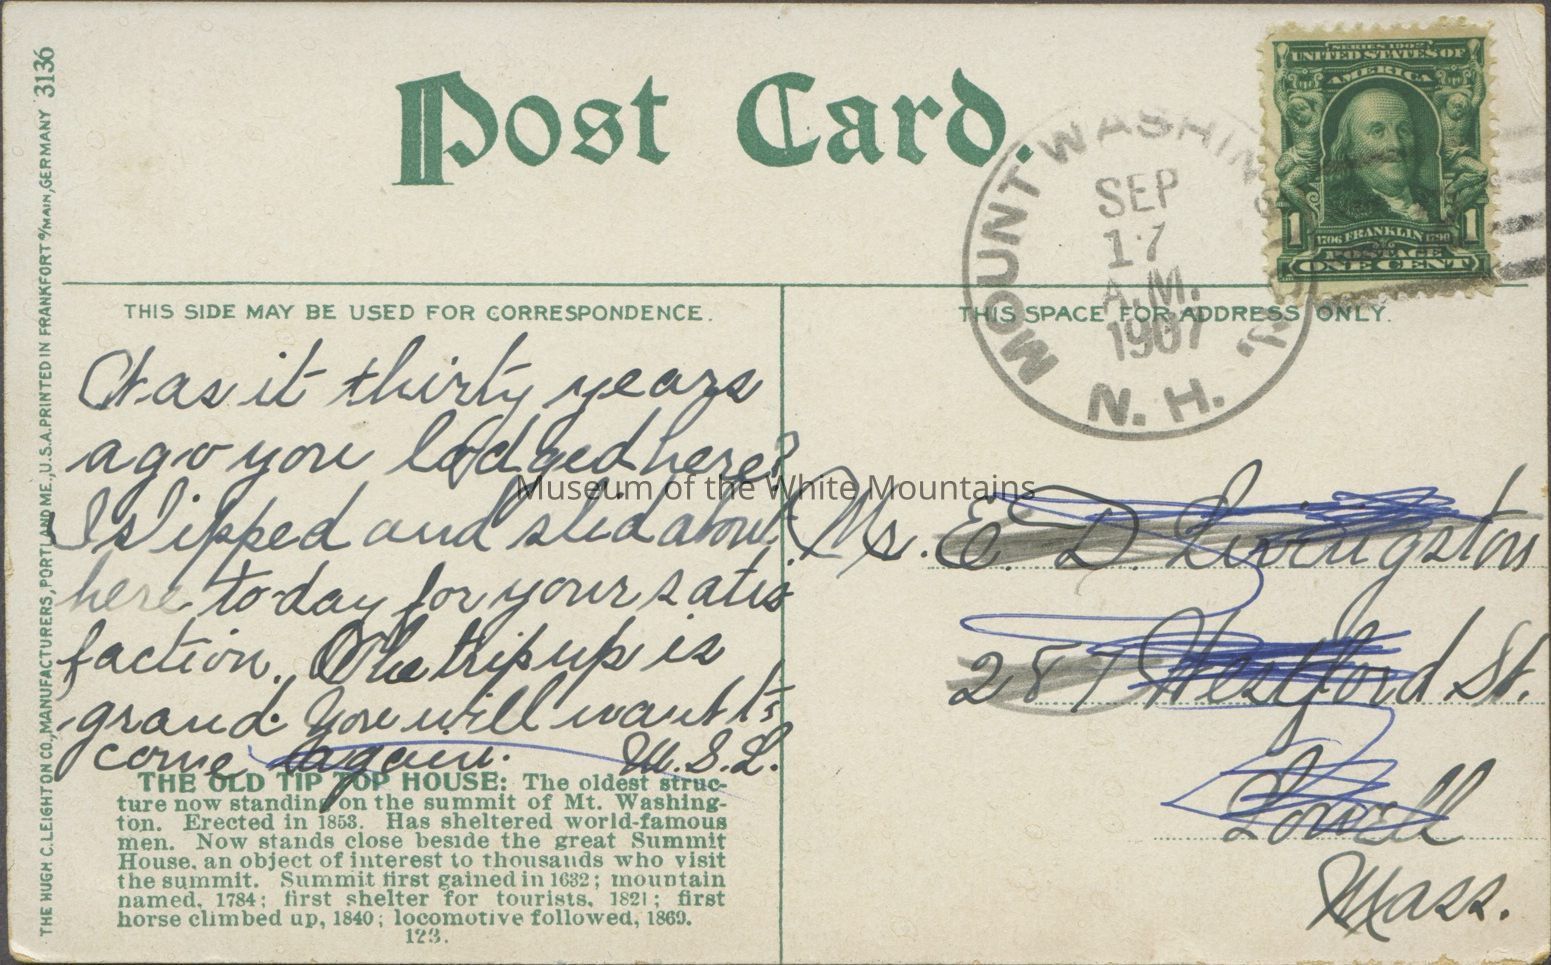 THE HUGH C. LEIGHTON CO., MANUFACTURERS, PORTLAND ME., U.S.A. PRINTED IN FRANKFORT O/MAIN, GERMANY 3136
Post Card.
SERIES 1902
UNITED STATES OF
AMERICA
1 1706 FRANKLIN 1790 1
POSTAGE
ONE CENT
MOUNT WASHIN
SEP
17
A.M.
1907
N. H.
THIS SIDE MAY BE USED FOR CORRESPONDENCE.
Was it thirty years
ago you lodged here?
I slipped and slid about
here to-day for your satis
faction. The trip up is
grand. You will want to
come again. M.S.L.
THE OLD TIP TOP HOUSE: The oldest struc-
ture now standing on the summit of Mt. Washing-
ton. Erected in 1853. Has sheltered world-famous
men. Now stands close beside the great Summit
House, an object of interest to thousands who visit
the summit. Summit first gained in 1632; mountain
named, 1784; first shelter for tourists, 1821; first
horse climbed up, 1840; locomotive followed, 1869.
123.
THIS SPACE FOR ADDRESS ONLY.
Mr. E. D. Livingston
287 Westford St.
Lowell
Mass.
Museum of the White Mountains